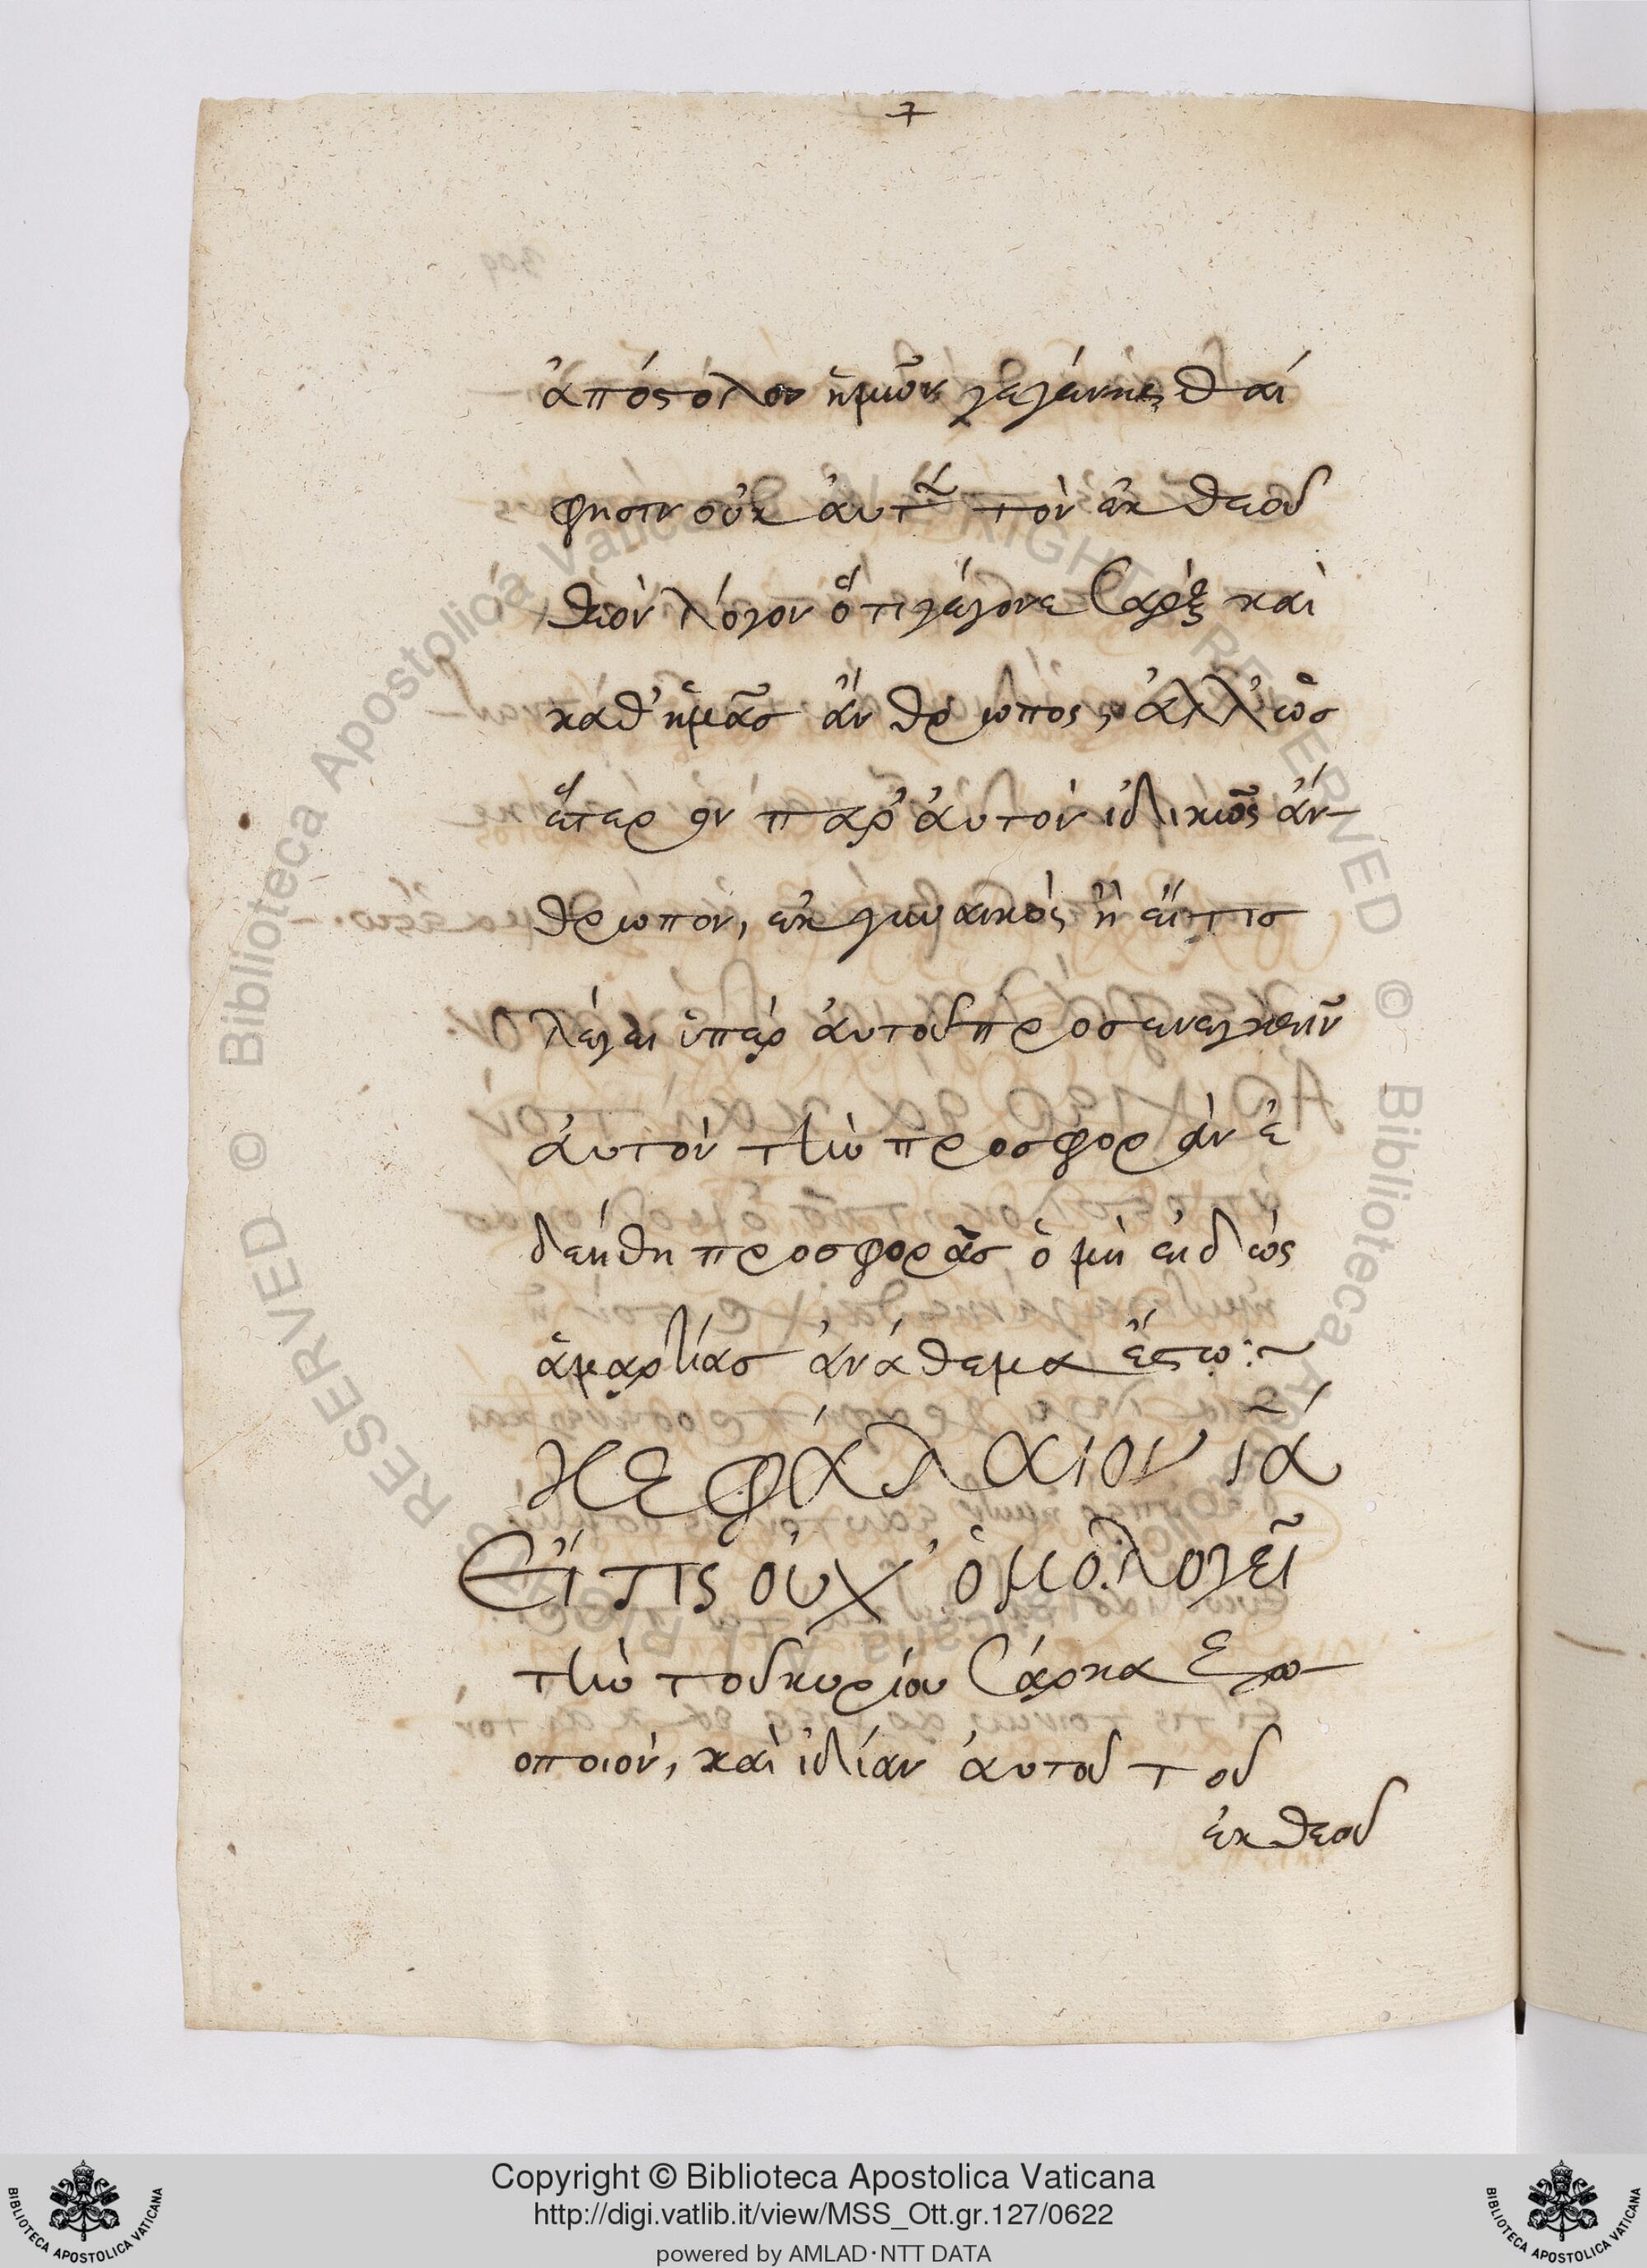 7
ἀπόστολον ἡμῶν γεγέννησθαί
φησιν οὐκ αὐτὸν τὸν ἐκ θεοῦ
θεὸν λόγον ὅτι γέγονε σὰρξ καὶ
καθ' ἡμᾶσ ἄνθρωπος, ἀλλ' ὡσ
ἕτερον παρ' αὐτὸν ἰδικῶς ἄν-
θρωπον, ἐκ γυναικὸς ἢ εἴ τισ
λέγει ὑπὲρ αὐτοῦ προσενεγκεῖν
αὐτὸν τὴν προσφορὰν ἐ
δεήθη προσφορᾶσ ὁ μὴ εἰδὼς
ἁμαρτίασ ἀνάθεμα ἔστω:~
κεφάλαιον ια
Εἴ τις οὐχ' ὁμολογεῖ
τὴν τοῦ κυρίου σάρκα ζω-
οποιὸν, καὶ ἰδίαν αὐτοῦ τοῦ
ἐκ θεοῦ
© Biblioteca Apostolica Vaticana ALL RIGHTS RESERVED
Copyright © Biblioteca Apostolica Vaticana
http://digi.vatlib.it/view/MSS_Ott.gr.127/0622
powered by AMLAD·NTT DATA
BIBLIOTECA APOSTOLICA VATICANA
BIBLIOTECA APOSTOLICA VATICANA